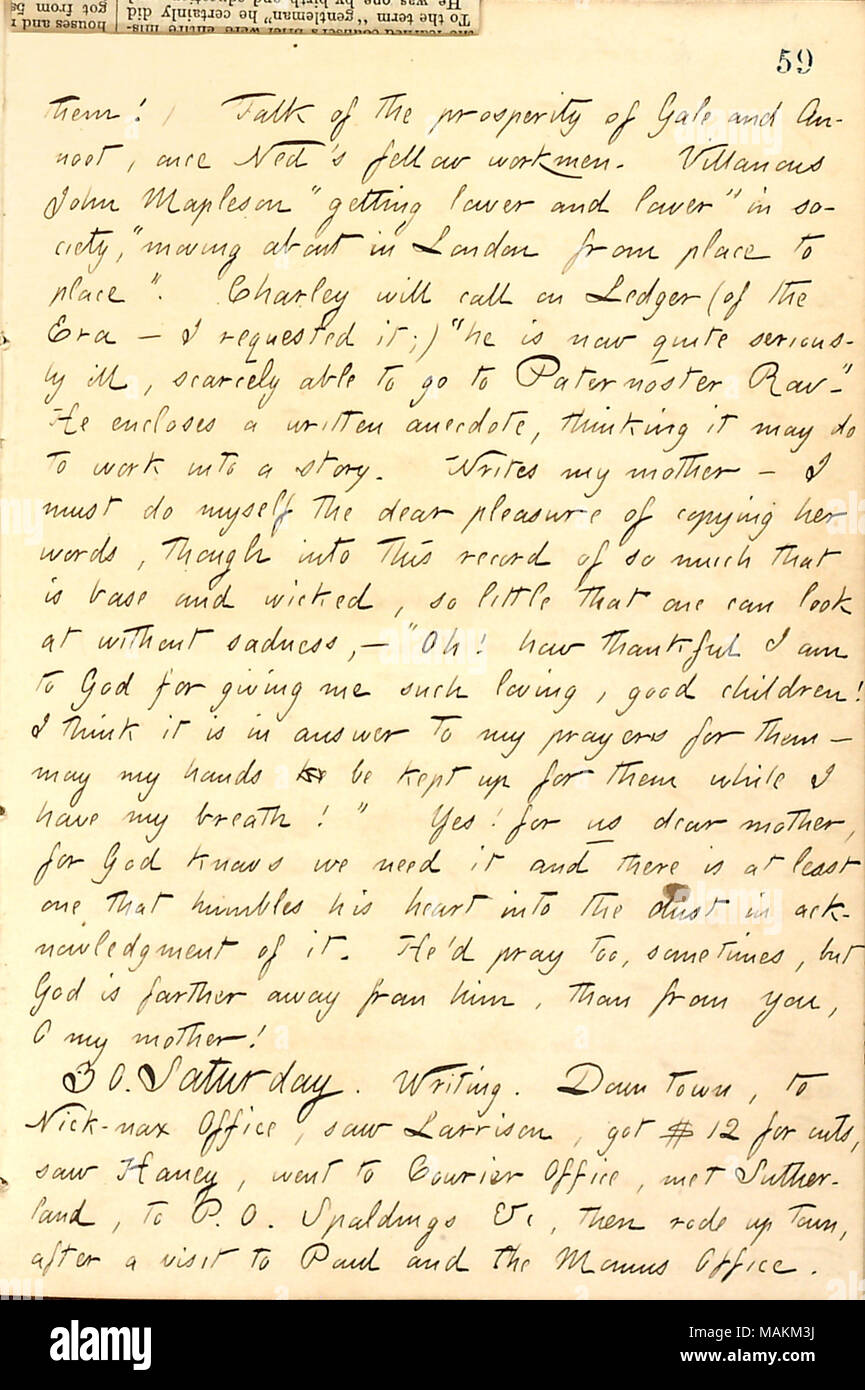 houses and
got from 5s
the learned counsel's brief were entire mis-
To the term "gentleman" he certainly did
He was one by birth and education
59
them! Talk of the prosperity of Gale and An-
noot, once Ned's fellow workmen. Villanous
John Mapleson "getting lower and lower" in so-
ciety, "moving about in London from place to
place". Charley will call on Ledger (of the
Era — I requested it;) "he is now quite serious-
ly ill, scarcely able to go to Paternoster Row."
He encloses a written anecdote, thinking it may do
to work into a story. Writes my mother — I
must do myself the dear pleasure of copying her
words, though into this record of so much that
is base and wicked, so little that one can look
at without sadness, — "Oh! how thankful I am
to God for giving me such loving, good children!
I think it is in answer to my prayers for them —
may my hands be kept up for them while I
have my breath!" Yes! for us dear mother,
for God knows we need it and there is at least
one that humbles his heart into the dust in ack-
nowledgment of it. He'd pray too, sometimes, but
God is farther away from him, than from you,
O my mother!
30. Saturday. Writing. Down town, to
Nick-nax Office, saw Larrison, got $12 for cuts,
saw Haney, went to Courier Office, met Suther-
land, to P.O. Spaldings &c, then rode up town,
after a visit to Paul and the Momus Office.
alamy
Image ID: MAKM3J
www.alamy.com